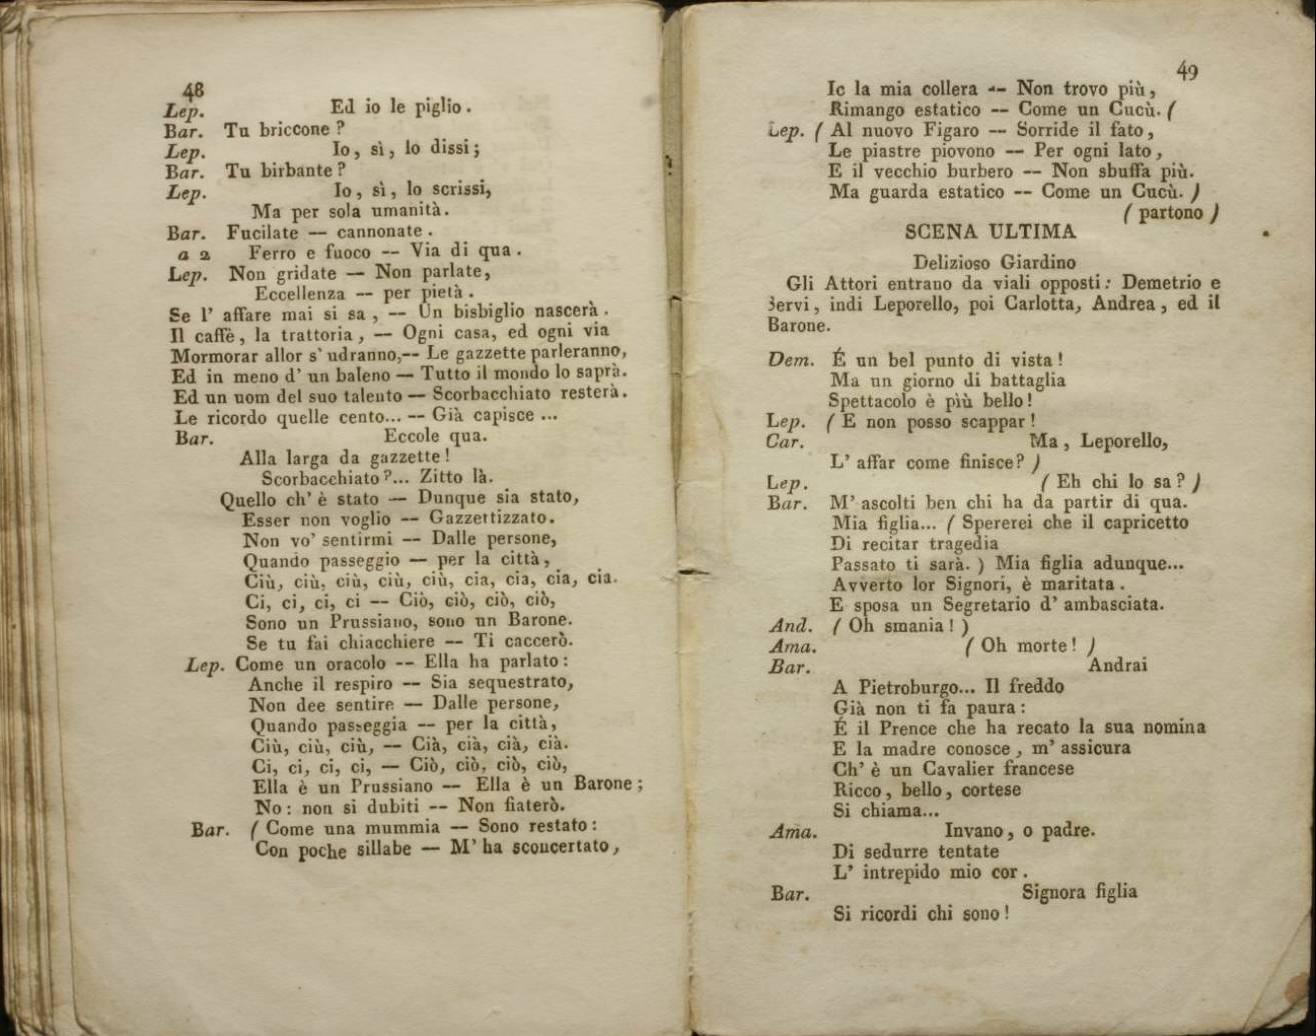 48
Lep. Ed io le piglio.
Bar. Tu briccone?
Lep. Io, sì, lo dissi;
Bar. Tu birbante?
Lep. Io, sì, lo scrissi,
Ma per sola umanità.
Bar. Fucilate — cannonate.
a 2 Ferro e fuoco -- Via di qua.
Lep. Non gridate — Non parlate,
Eccellenza -- per pietà.
Se l' affare mai si sa, -- Un bisbiglio nascerà.
Il caffè, la trattoria, -- Ogni casa, ed ogni via
Mormorar allor s' udranno,-- Le gazzette parleranno,
Ed in meno d' un baleno — Tutto il mondo lo saprà.
Ed un uom del suo talento — Scorbacchiato resterà.
Le ricordo quelle cento... -- Già capisce ...
Bar. Eccole qua.
Alla larga da gazzette!
Scorbacchiato?... Zitto là.
Quello ch' è stato — Dunque sia stato,
Esser non voglio -- Gazzettizzato.
Non vo' sentirmi -- Dalle persone,
Quando passeggio — per la città,
Ciù, ciù, ciù, ciù, ciù, cia, cia, cia, cia.
Ci, ci, ci, ci -- Ciò, ciò, ciò, ciò,
Sono un Prussiano, sono un Barone.
Se tu fai chiacchiere -- Ti caccerò.
Lep. Come un oracolo -- Ella ha parlato:
Anche il respiro -- Sia sequestrato,
Non dee sentire — Dalle persone,
Quando passeggia -- per la città,
Ciù, ciù, ciù, — Cià, cià, cià, cià.
Ci, ci, ci, ci, — Ciò, ciò, ciò, ciò,
Ella è un Prussiano — Ella è un Barone;
No: non si dubiti -- Non fiaterò.
Bar. ( Come una mummia — Sono restato:
Con poche sillabe — M' ha sconcertato,
49
Io la mia collera -- Non trovo più,
Rimango estatico -- Come un Cucù. (
Lep. ( Al nuovo Figaro -- Sorride il fato,
Le piastre piovono -- Per ogni lato,
E il vecchio burbero -- Non sbuffa più.
Ma guarda estatico -- Come un Cucù. )
( partono )
SCENA ULTIMA
Delizioso Giardino
Gli Attori entrano da viali opposti: Demetrio e
Servi, indi Leporello, poi Carlotta, Andrea, ed il
Barone.
Dem. É un bel punto di vista!
Ma un giorno di battaglia
Spettacolo è più bello!
Lep. ( E non posso scappar!
Car. Ma, Leporello,
L' affar come finisce? )
Lep. ( Eh chi lo sa? )
Bar. M' ascolti ben chi ha da partir di qua.
Mia figlia... ( Spererei che il capricetto
Di recitar tragedia
Passato ti sarà. ) Mia figlia adunque...
Avverto lor Signori, è maritata.
E sposa un Segretario d' ambasciata.
And. ( Oh smania! )
Ama. ( Oh morte! )
Bar. Andrai
A Pietroburgo... Il freddo
Già non ti fa paura:
É il Prence che ha recato la sua nomina
E la madre conosce, m' assicura
Ch' è un Cavalier francese
Ricco, bello, cortese
Si chiama...
Ama. Invano, o padre.
Di sedurre tentate
L' intrepido mio cor.
Bar. Signora figlia
Si ricordi chi sono!